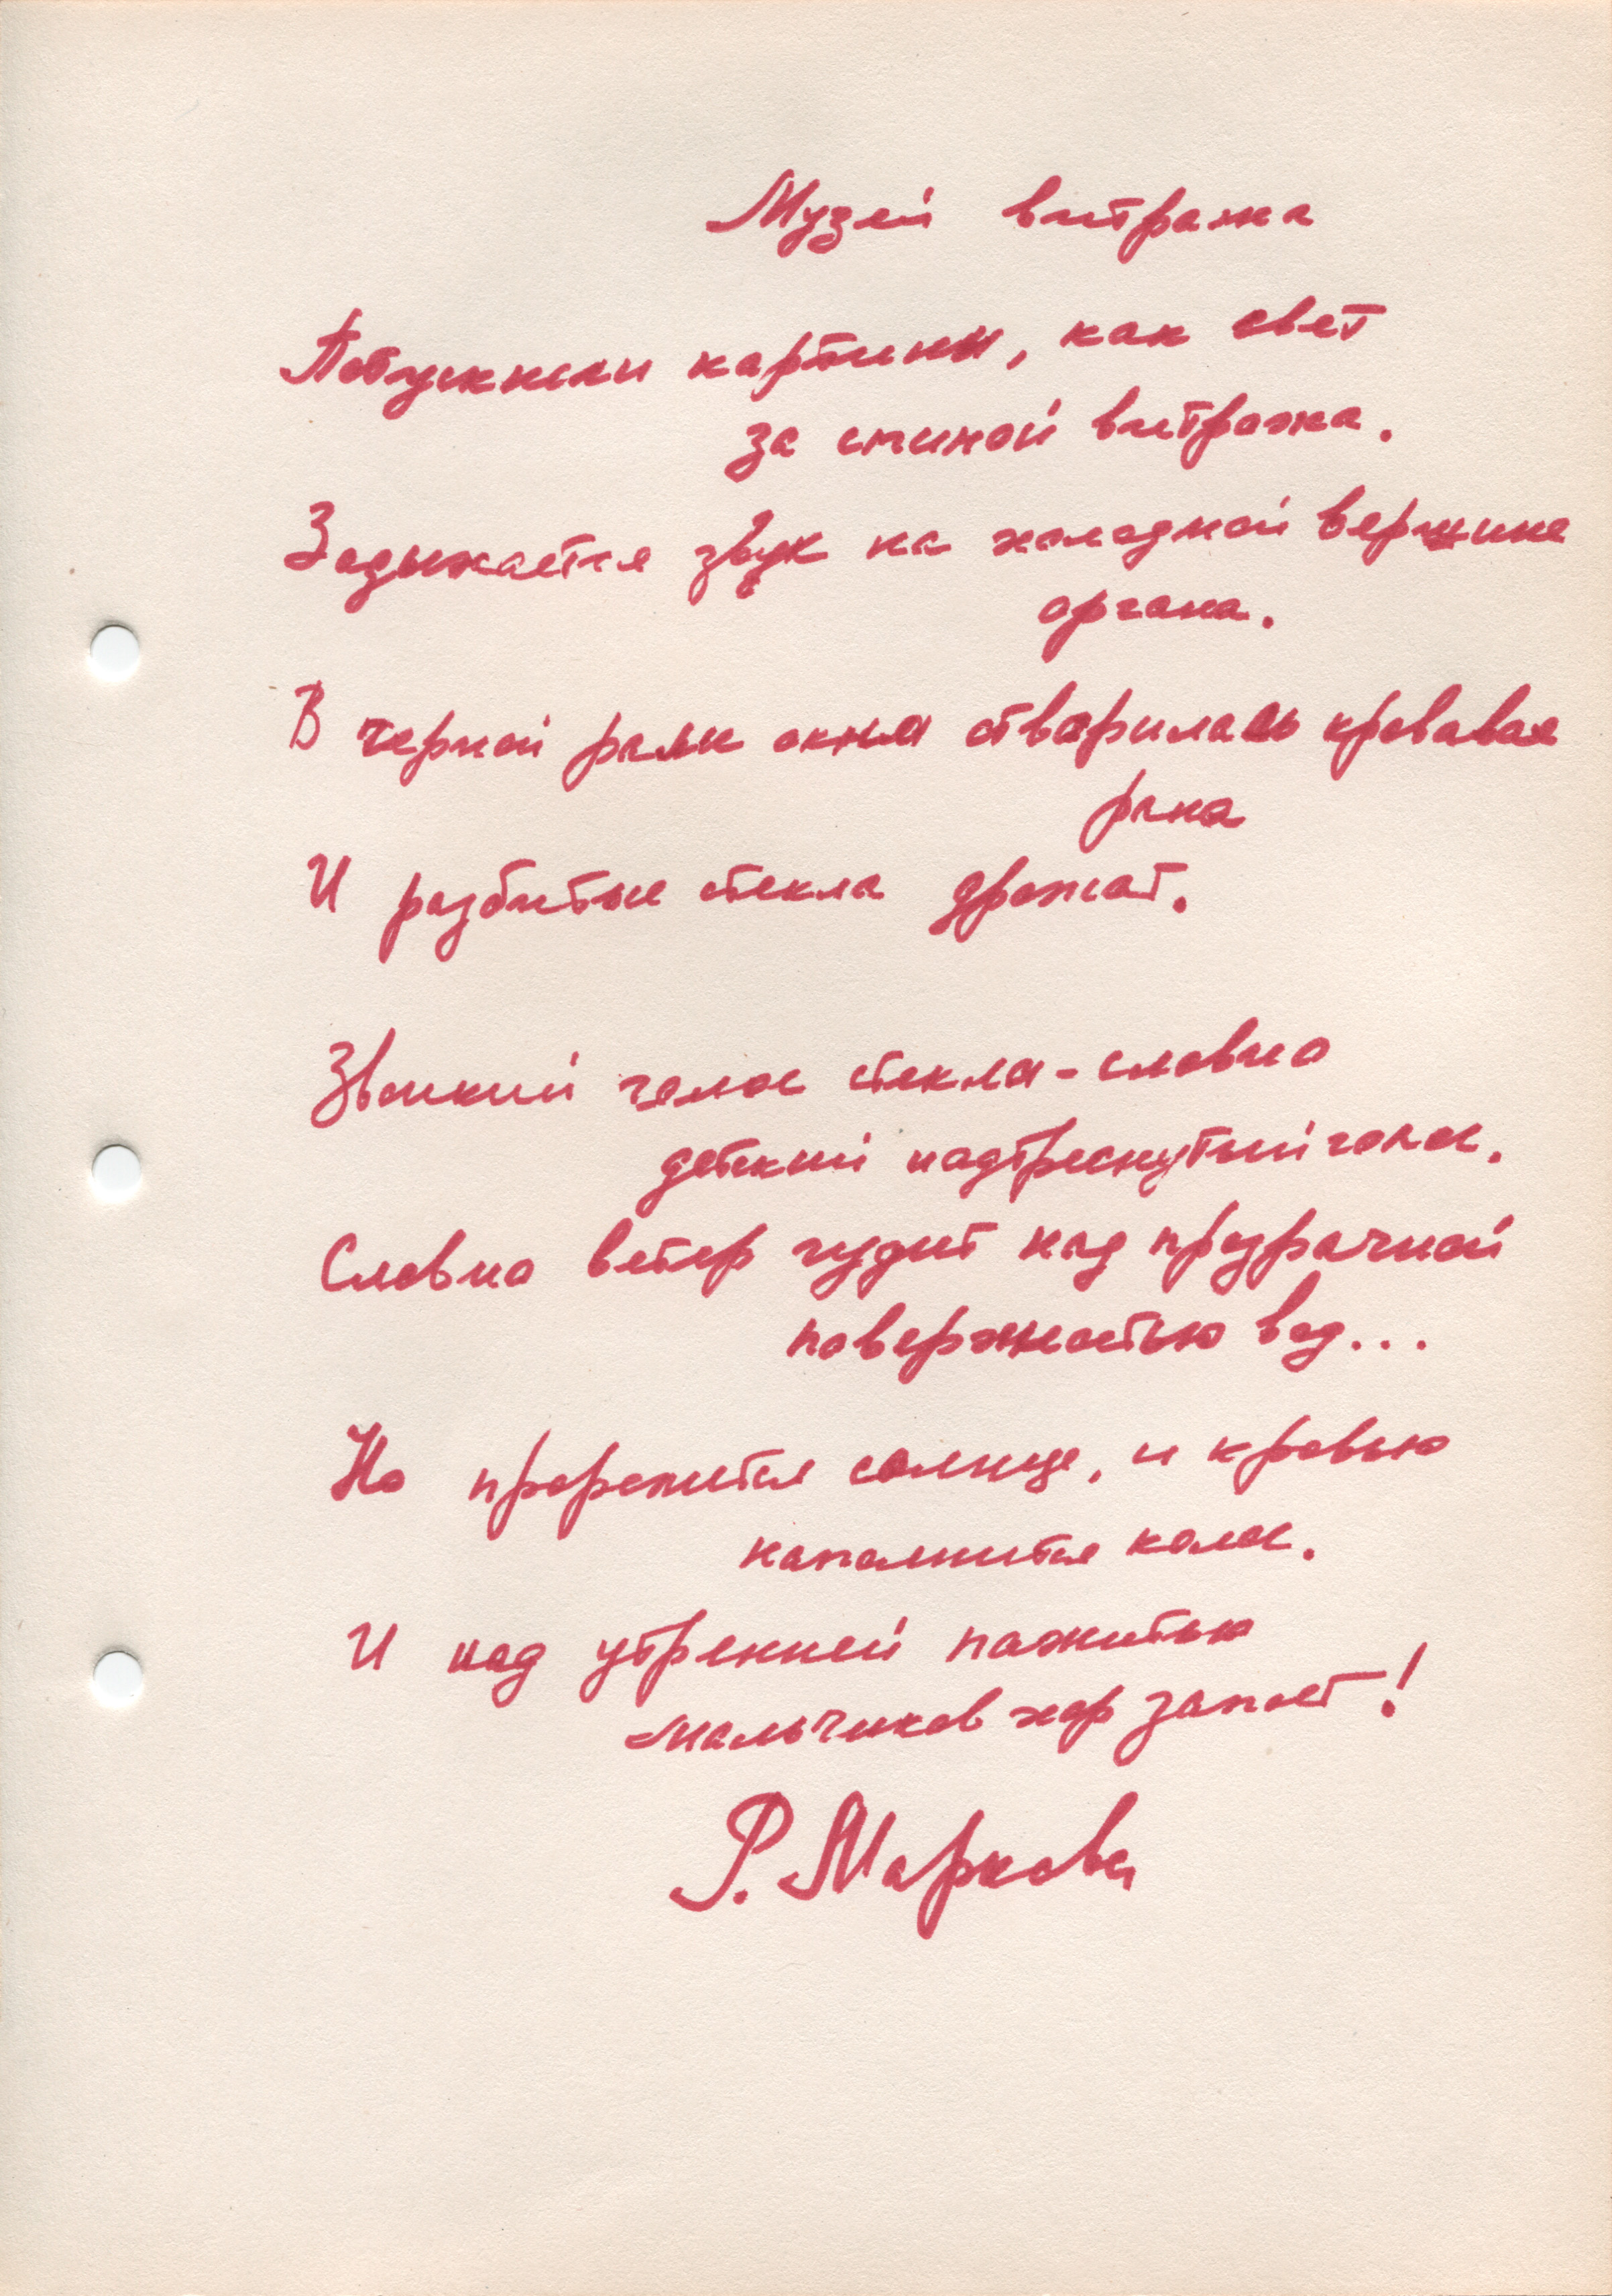 Музей витража
Потускнели картины, как свет
за спиной витража.
Задыхается звук на холодной вершине
органа.
В черной раме окна отворилась кровавая
рана
И разбитые стекла дрожат.
Звонкий голос стекла - словно
детский надтреснутый голос.
Словно ветер гудит над прозрачной
поверхностью вод...
Но прорежится солнце, и кровью
наполнится колос.
И над утренней пажитью
мальчиков хор запоет!
Р. Маркова